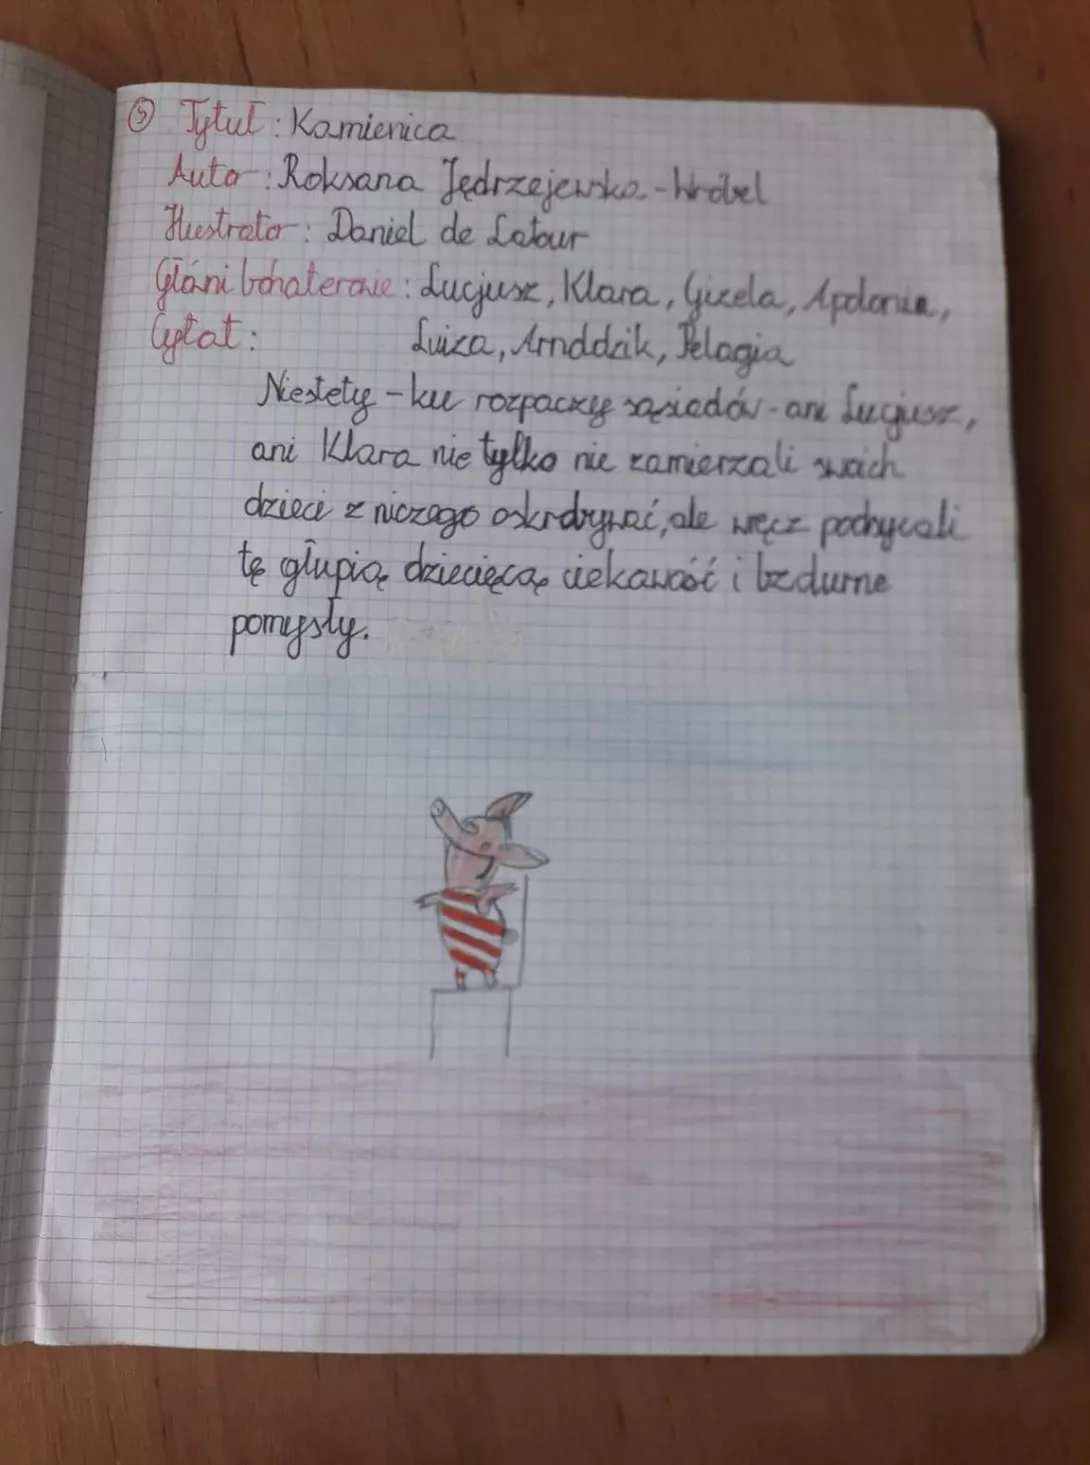 ⑤ Tytuł: Kamienica
Autor: Roksana Jędrzejewska-Wróbel
Ilustrator: Daniel de Latour
Głóni bohaterowie: Lucjusz, Klara, Gizela, Apolonia,
Cytat: Luiza, Arnddzik, Pelagia
Niestety - ku rozpaczy sąsiadów - ani Lucjusz,
ani Klara nie tylko nie zamierzali swoich
dzieci z niczego oskrobywać, ale wręcz pochycali
tę głupią dziecięcą ciekawość i bzdurne
pomysły.